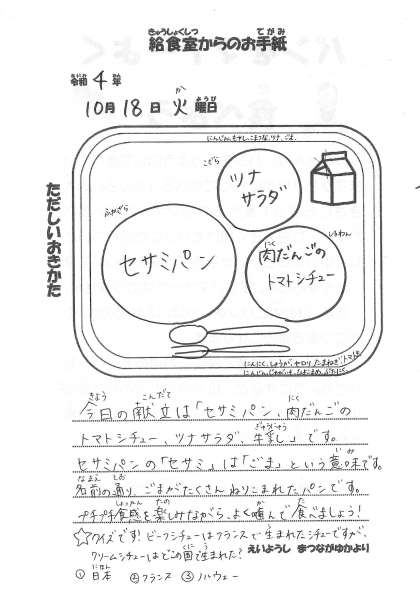 きゅうしょくしつ てがみ
給食室からのお手紙
令和4年
10月18日火曜日
ただしいおきかた
にんじん、もやし、こまつな、ツナ、ごま、
こざら
ツナ
サラダ
セサミパン
しるわん
肉だんごの
トマトシチュー
にんにく、しょうが、セロリ、たまねぎ、トマト
今日の献立は「セサミパン、肉だんごの
トマトシチュー、ツナサラダ、牛乳」です。
セサミパンの「セサミ」は「ごま」という意味です。
名前の通り、ごまがたくさんねりこまれたパンです。
プチプチ食感を楽しみながら、よく噛んで食べましょう!
☆クイズです!ビーフシチューはフランスで生まれたシチューですが、
クリームシチューはどこの国で生まれた?
えいようし まつながゆかより
①日本 ②フランス ③ノルウェー